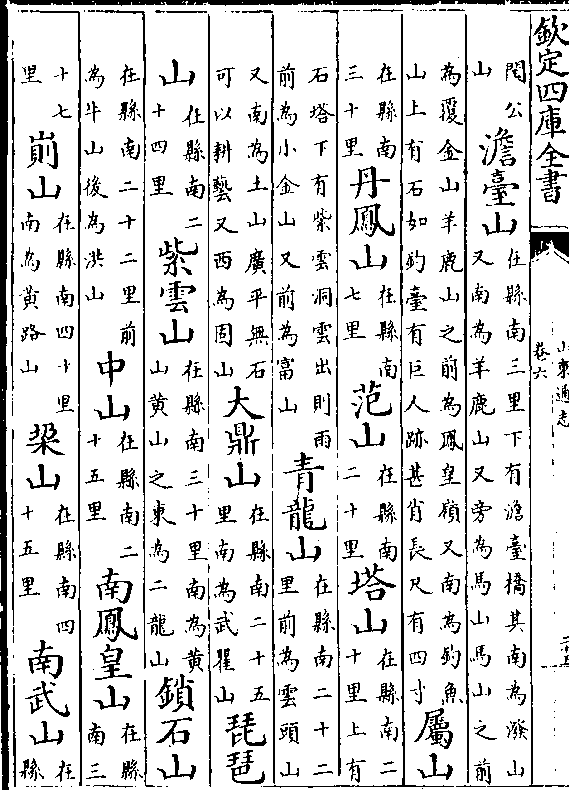 欽定四庫全書
山東通志
卷六
閔公山澹臺山在縣南三里下有澹臺橋其南為潑山又南為羊鹿山又旁為馬山馬山之前
為覆金山羊鹿山之前為鳳皇嶺又南為釣魚山上有石如釣臺有巨人跡甚肖長尺有四寸屬山
在縣南三十里丹鳳山在縣南七里范山在縣南二十里塔山在縣南二十里上有
石塔下有紫雲洞雲出則雨前為小金山又前為富山青龍山在縣南二十二里前為雲頭山
又南為土山廣平無石可以耕藝又西為固山大鼎山在縣南二十五里南為武山琵琶
山在縣南二十四里紫雲山在縣南三十里南為黃山黃山之東為二龍山鎖石山
在縣南二十二里前為牛山後為洪山中山在縣南二十五里南鳳皇山在縣南三
十七里山在縣南四十里南為黃路山梁山在縣南四十五里南武山在縣